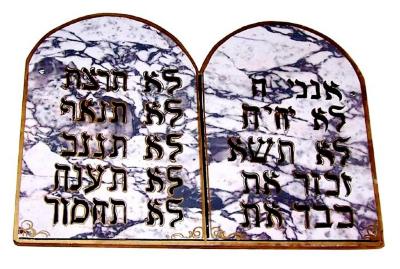 אנכי ה
לא יהיה
לא תשא
זכור את
כבד את
לא תרצח
לא תנאף
לא תגנב
לא תענה
לא תחמוד